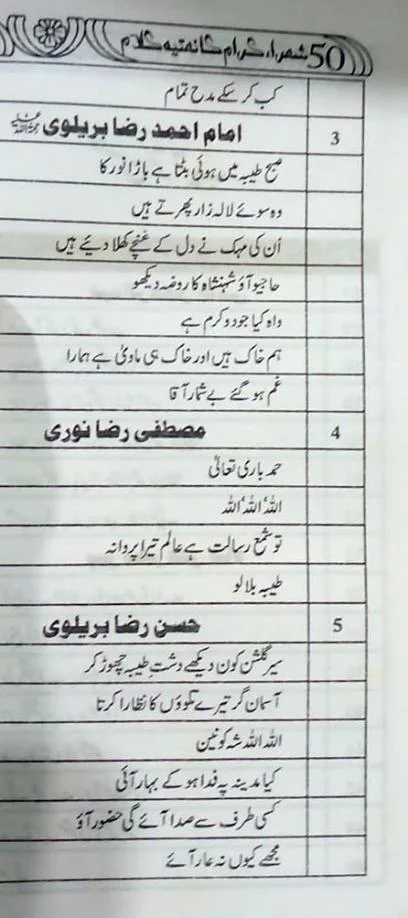 50 شعراء کرام کا نعتیہ کلام
کب کر سکے مدح تمام
3 امام احمد رضا بریلوی
صبح طیبہ میں ہوئی بٹتا ہے باڑا نور کا
وہ سوئے لالہ زار پھرتے ہیں
اُن کی مہک نے دل کے غنچے کھلا دیئے ہیں
حاجیو آؤ شہنشاہ کا روضہ دیکھو
واہ کیا جود و کرم ہے
ہم خاک ہیں اور خاک ہی ماویٰ ہے ہمارا
غم ہو گئے بے شمار آقا
4 مصطفی رضا نوری
حمد باری تعالیٰ
اللہ اللہ اللہ
تو شمع رسالت ہے عالم تیرا پروانہ
طیبہ بلا لو
5 حسن رضا بریلوی
سیر گلشن کون دیکھے دشتِ طیبہ چھوڑ کر
آسمان گر تیرے تلوؤں کا نظارا کرتا
اللہ اللہ شہ کونین
کیا مدینہ پہ فدا ہو کے بہار آئی
کسی طرف سے صدا آئے گی حضور آؤ
مجھے کیوں نہ عار آئے